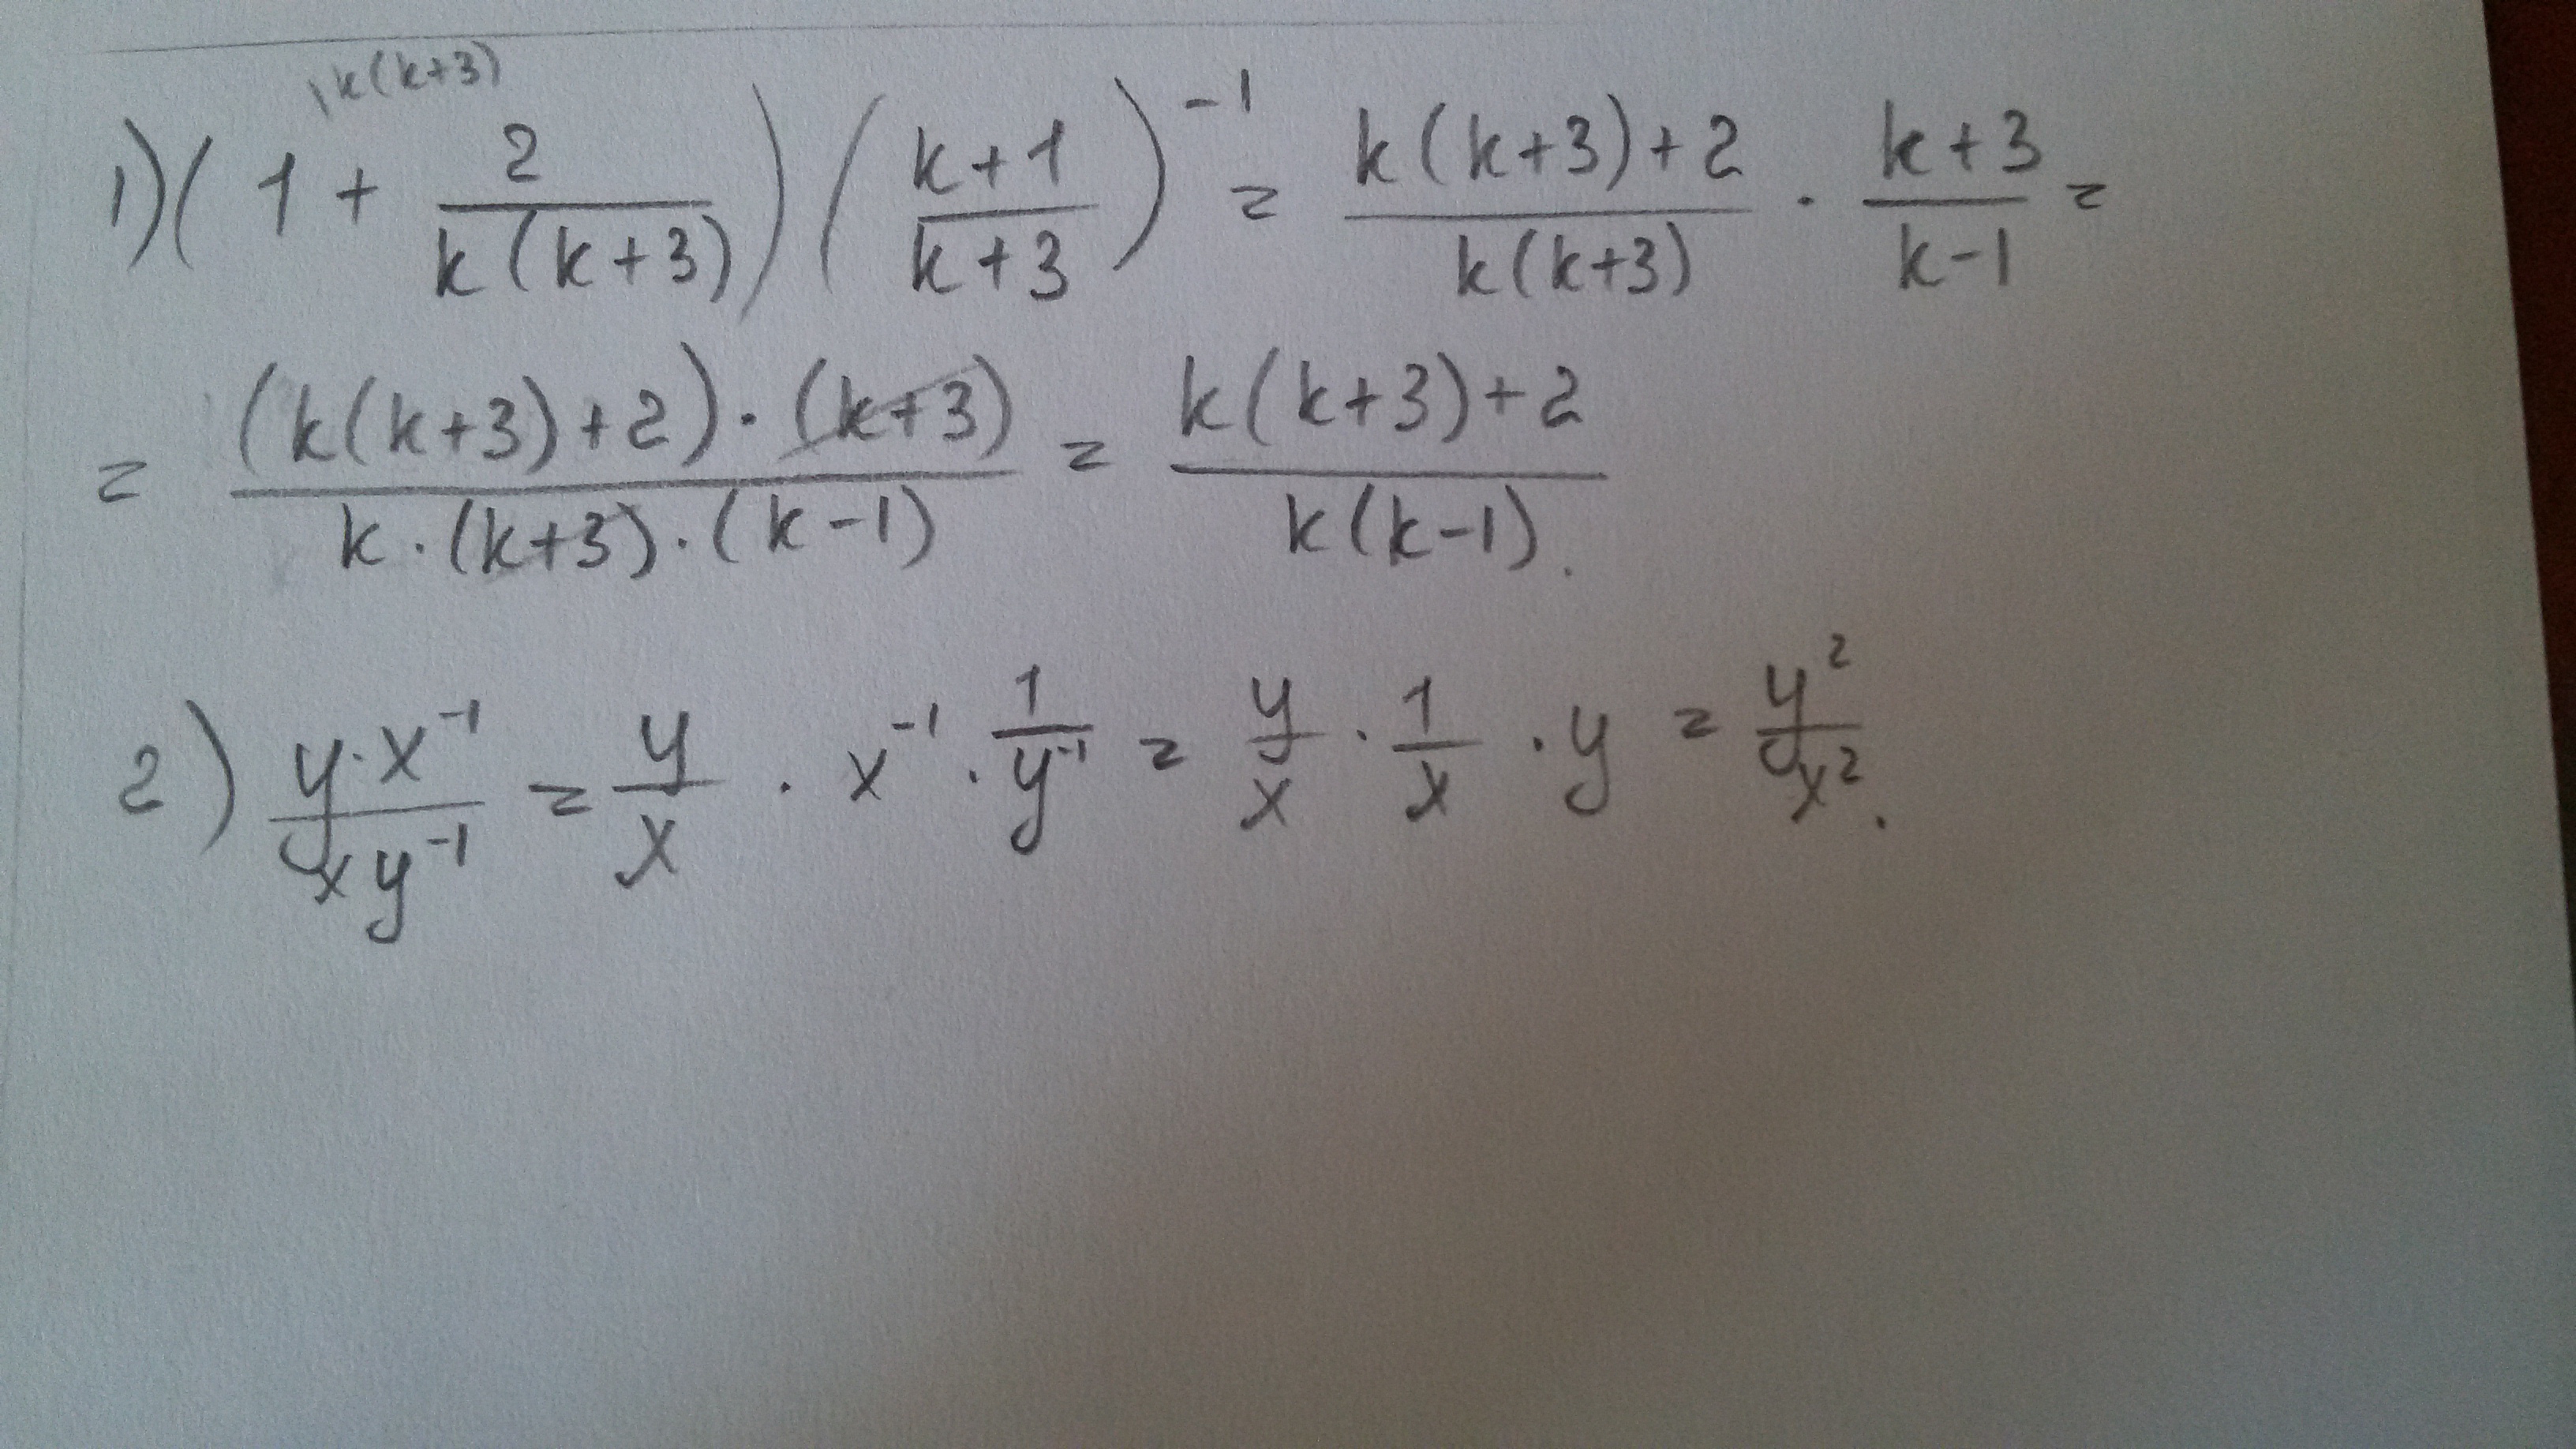 \k(k+3)
1) (1 + 2/(k(k+3))) ((k+1)/(k+3))^-1 = (k(k+3)+2)/(k(k+3)) · (k+3)/(k-1) =
= ((k(k+3)+2)·(k+3))/(k·(k+3)·(k-1)) = (k(k+3)+2)/(k(k-1)).
2) (y·x^-1)/(xy^-1) = y/x · x^-1 · 1/y^-1 = y/x · 1/x · y = y^2/x^2.